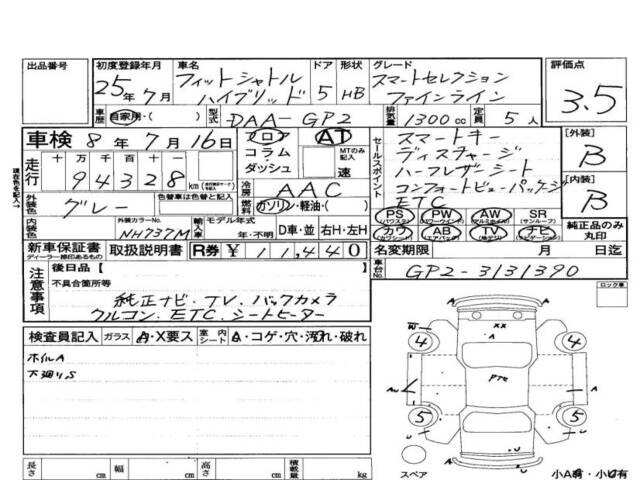 出品番号
初度登録年月 25年 7月
車名 フィットシャトル ハイブリッド
ドア 5 形状 HB
グレード スマートセレクション ファインライン
評価点 3.5
車歴 自家用・( ) 型式 DAA-GP2 排気量 1300cc 定員 5人
車検 8年 7月 16日
フロア・コラム・ダッシュ
AT MTのみ記入 速
セールスポイント
スマートキー
ディスチャージ
ハーフレザーシート
コンフォートビューパッケージ
ETC
[外装] B
[内装] B
走行 十万千百十一 94328km
冷房 AAC
外装色 グレー 色替車は色替と記入
燃料 ガソリン・軽油・( )
PS (パワステ) PW (パワーウインド) AW (アルミホイル) SR (サンルーフ)
カワ AB (エアバック) TV ナビ (ナビゲーション)
純正品のみ丸印
現在色を記入→
内装色 外装カラーNo. NH737M 輸入車 モデル年式 年・不明 D車・並 右H・左H
新車保証書 ディーラー捺印あるもの 取扱説明書 R券 ¥11,440 名変期限 月 日迄
車台No. GP2-3131390
注意事項 後日品【 】
不具合箇所等
純正ナビ.TV.バックカメラ
ウルコン.ETC.シートヒーター
ロック車
検査員記入 ガラス A・X要ス 室内シート A・コゲ・穴・汚れ・破れ
ホイルA
下廻りS
W XX
4 4
A
PTe
AW A
5 5
U U
スペア 小A有・小U有
長さ cm 幅 cm 高さ cm 積載量 kg